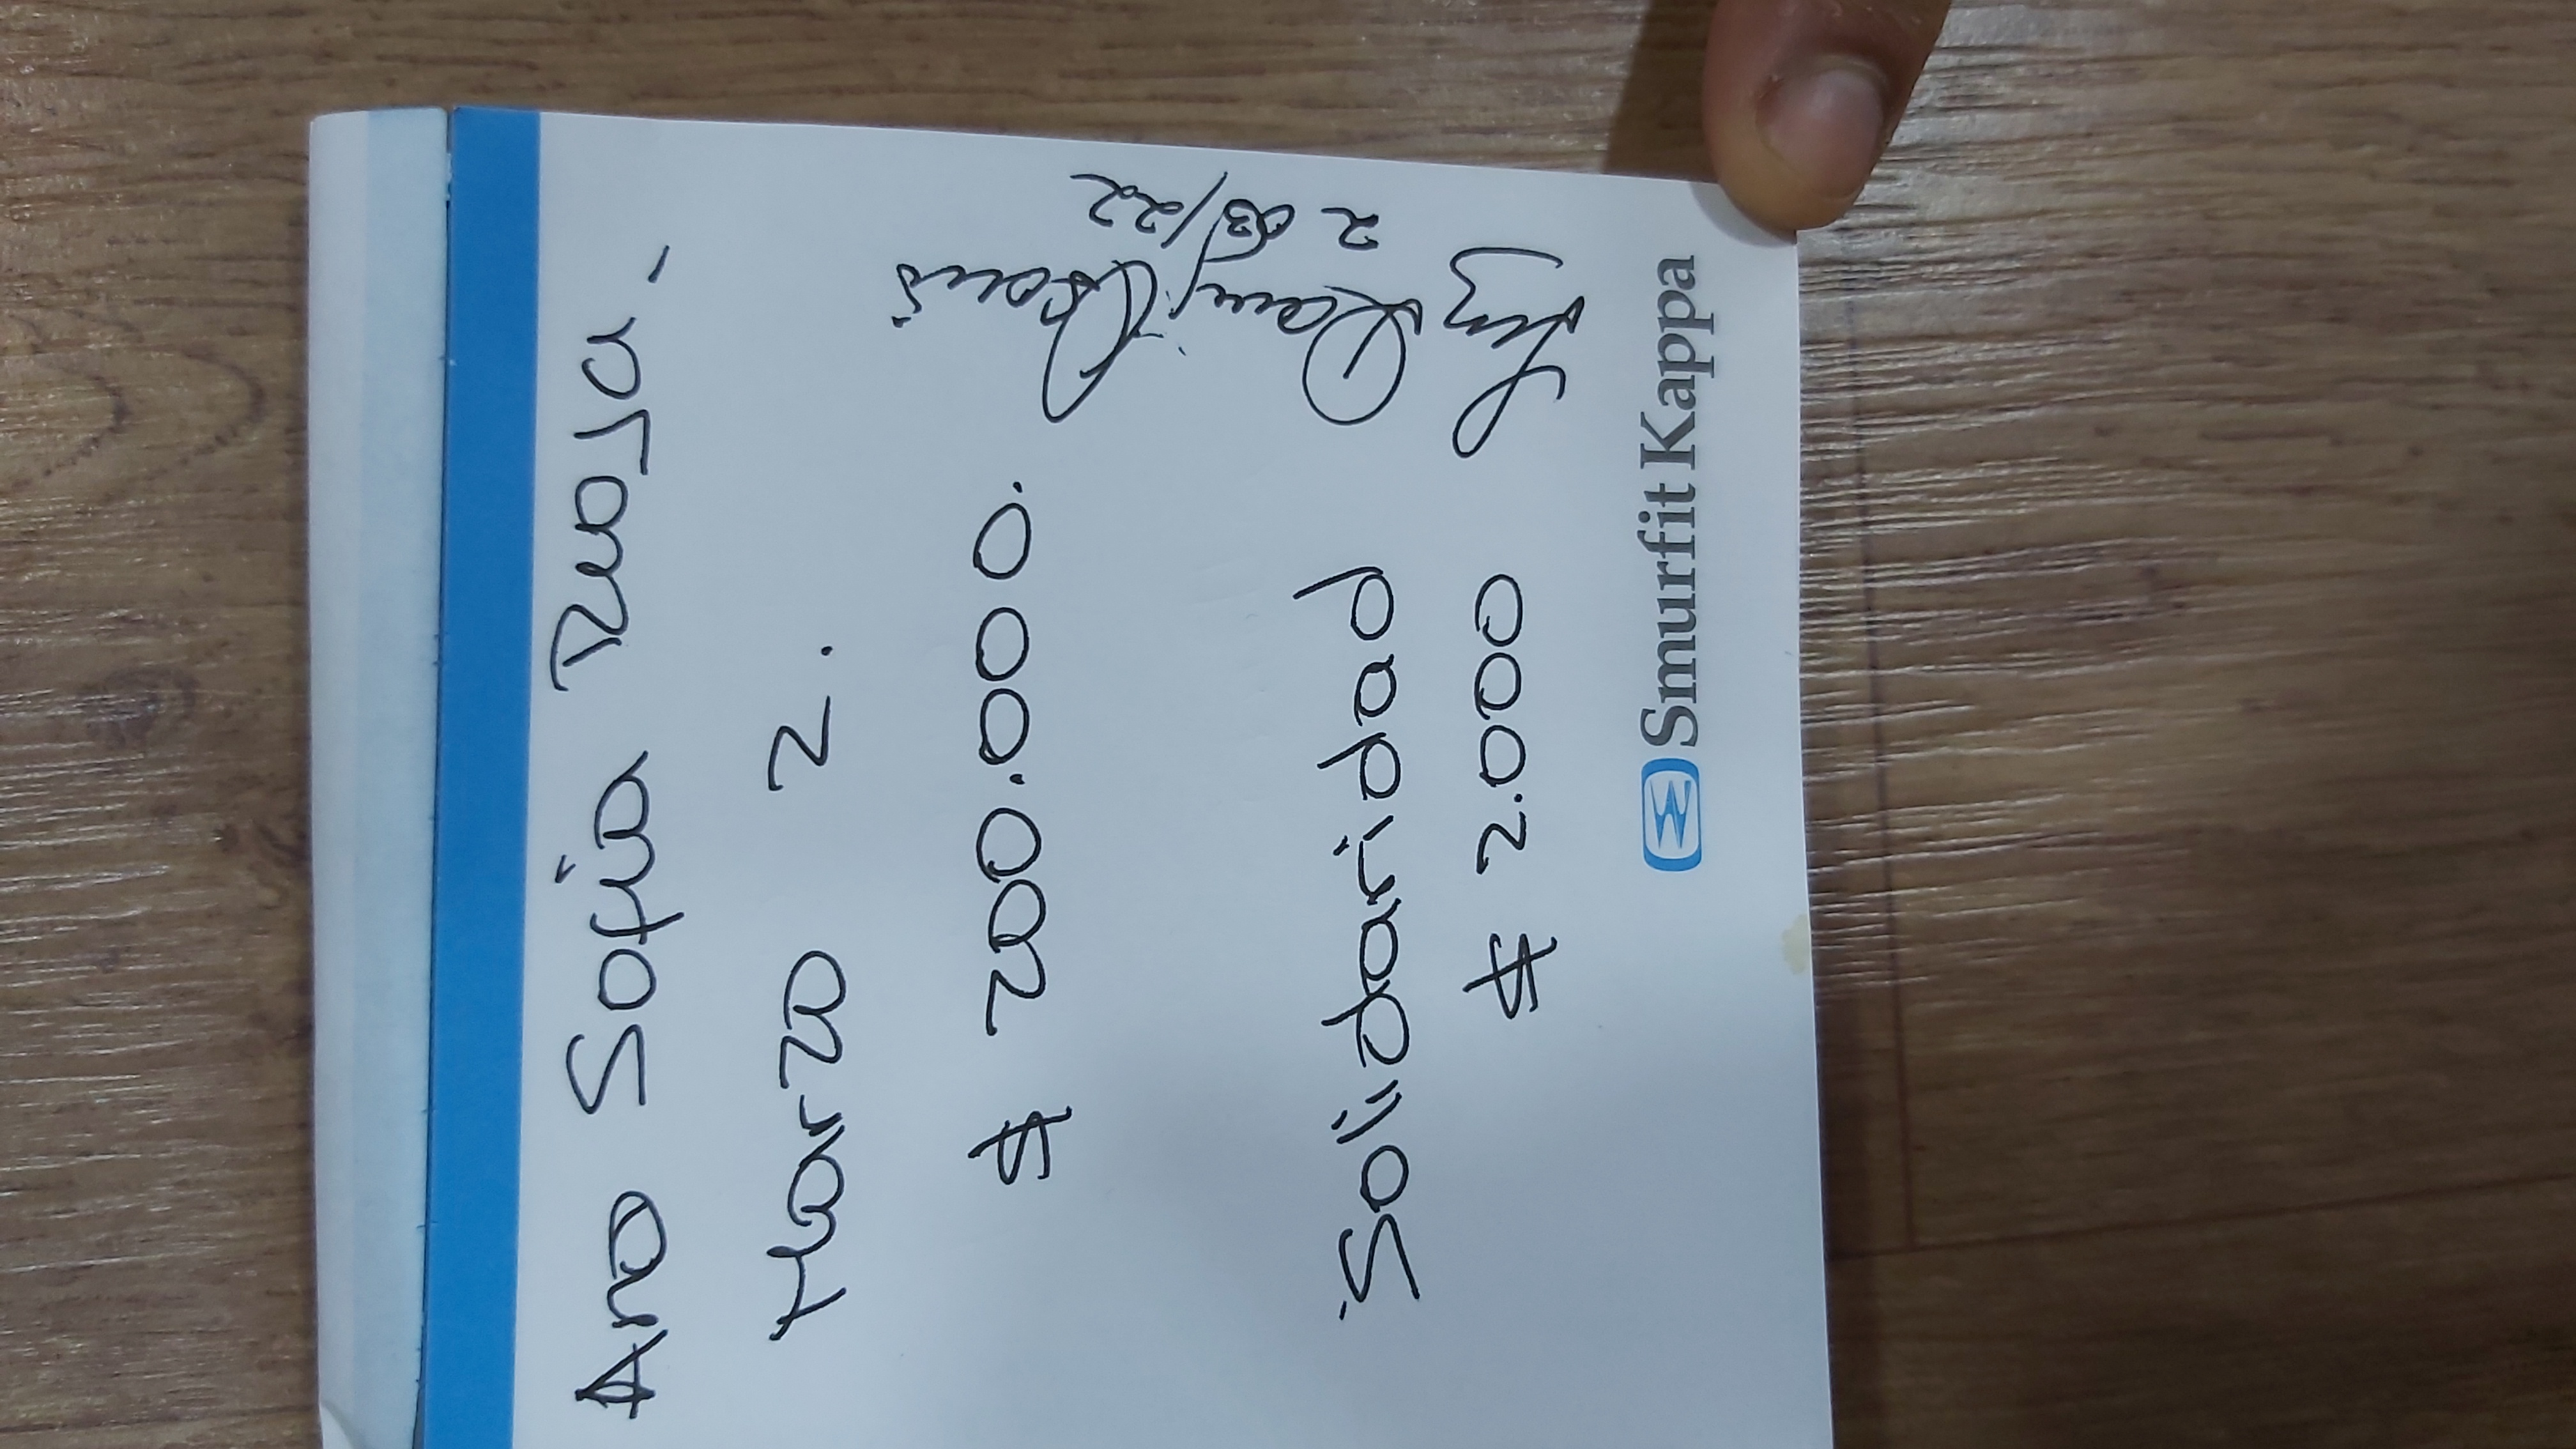 Ana Sofia
Marzo 2.
$ 200.000.
Solidaridad
$ 2.000
Luz Dary Osorio
2 03/22
Smurfit Kappa